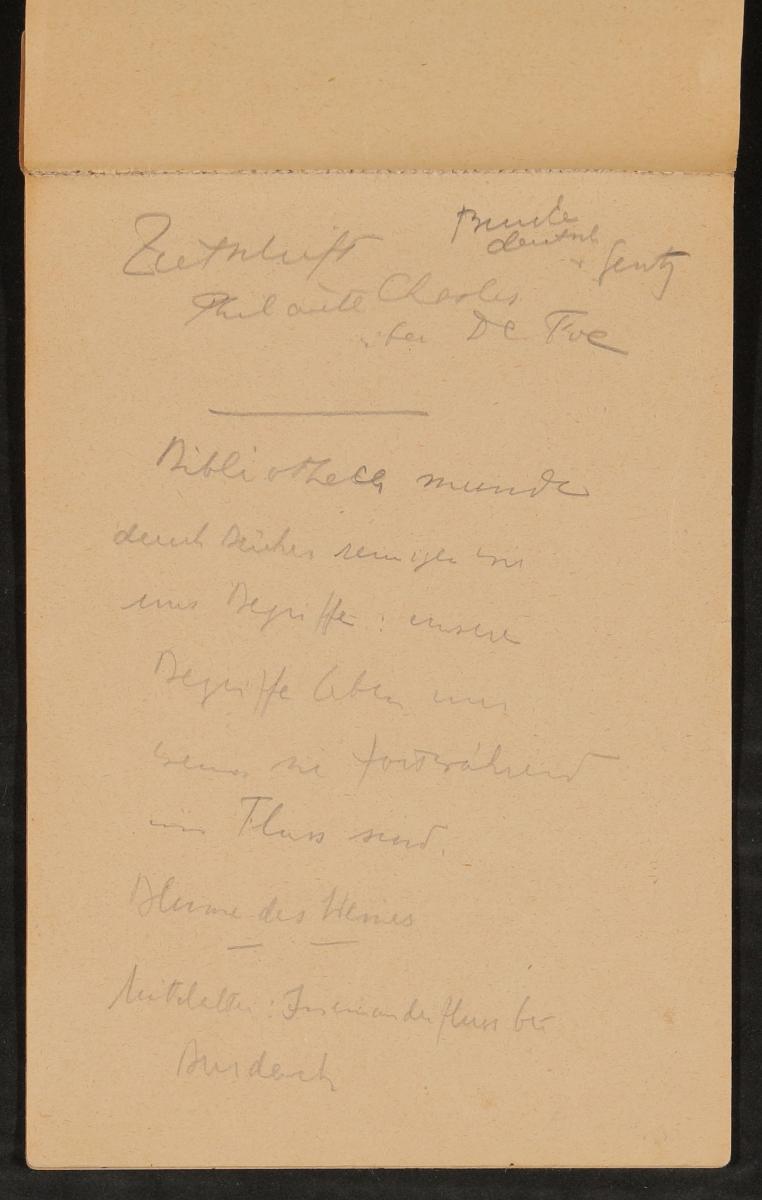 Zeitschrift
Burke
deutsch
v Gentz
Philarète Chasles
über De Foe
Bibliotheca mundi
durch Bücher reinigen wir
uns Begriffe: unsere
Begriffe leben nur
wenn sie fortwährend
im Fluss sind.
Blume des Weines
Mittelalter: Ineinanderfluss bei
Burdach